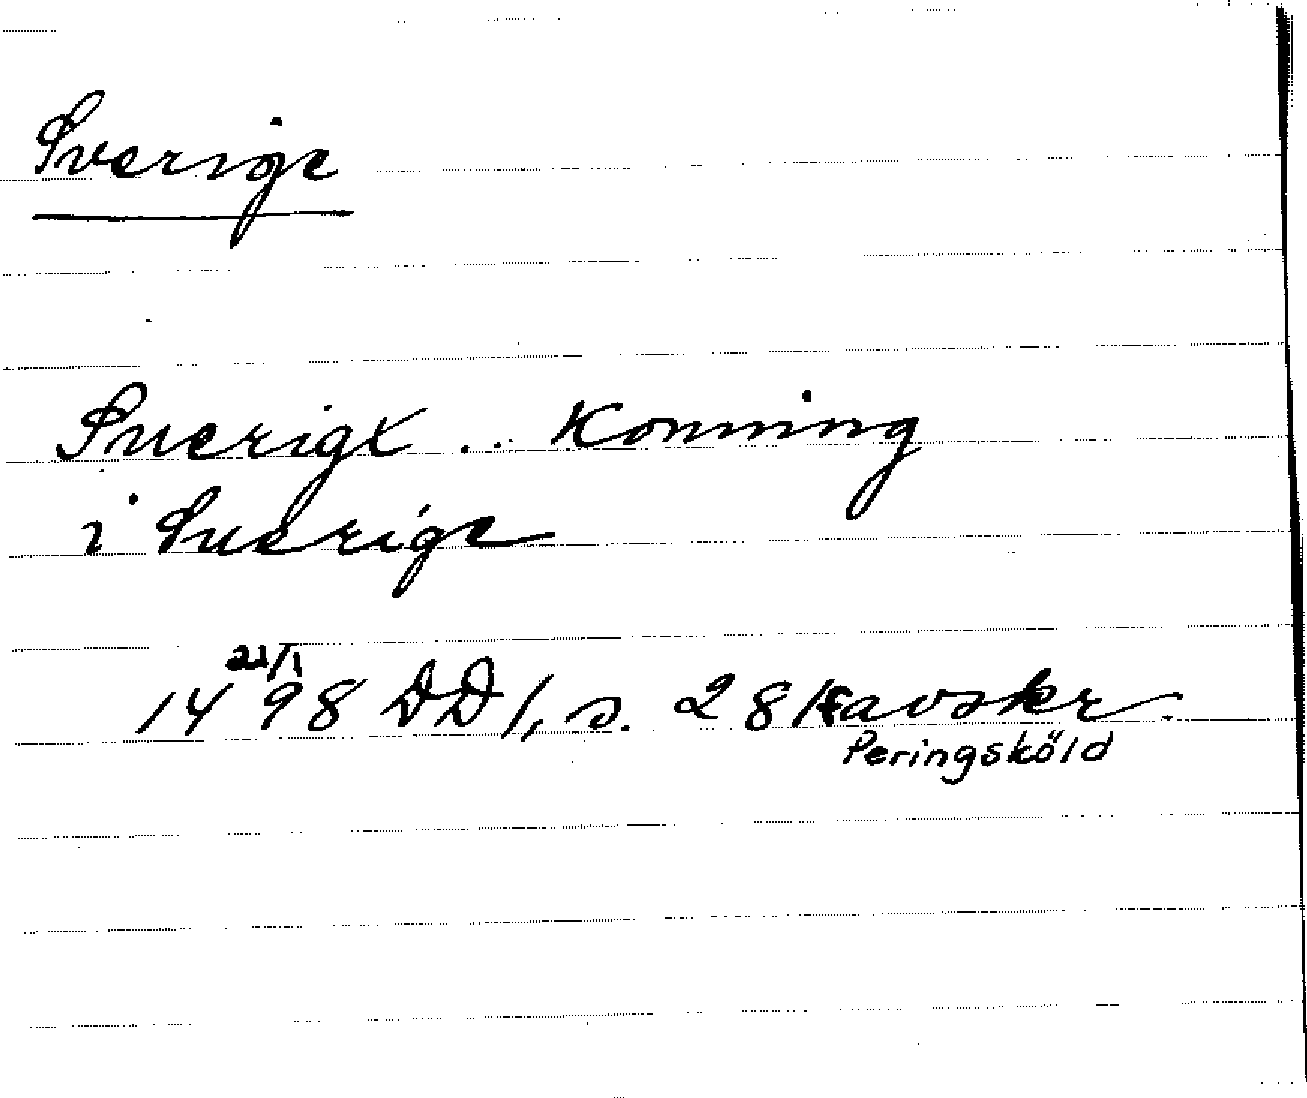 Sverige
Suerige .. Konning
i Suerige
14 22/1 98 DD 1, s. 28 avskr.
Peringsköld